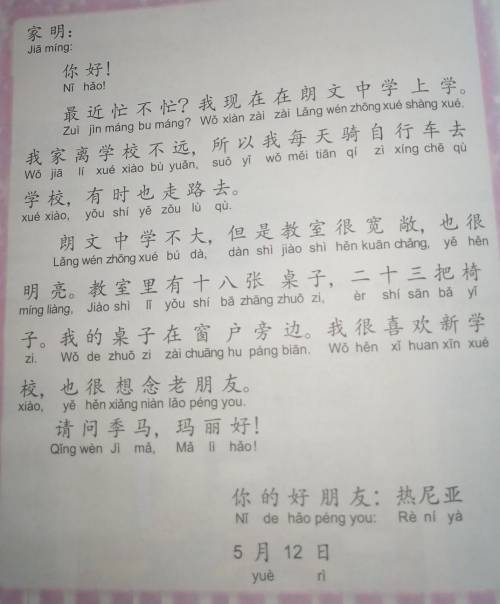 家明：
Jiā míng:
你好！
Nǐ hǎo!
最近忙不忙？我现在在朗文中学上学。
Zuì jìn máng bu máng? Wǒ xiàn zài zài Lǎng wén zhōng xué shàng xué.
我家离学校不远，所以我每天骑自行车去
Wǒ jiā lí xué xiào bù yuǎn, suǒ yǐ wǒ měi tiān qí zì xíng chē qù
学校，有时也走路去。
xué xiào, yǒu shí yě zǒu lù qù.
朗文中学不大，但是教室很宽敞，也很
Lǎng wén zhōng xué bú dà, dàn shì jiào shì hěn kuān chǎng, yě hěn
明亮。教室里有十八张桌子，二十三把椅
míng liàng, Jiào shì lǐ yǒu shí bā zhāng zhuō zi, èr shí sān bǎ yǐ
子。我的桌子在窗户旁边。我很喜欢新学
zi. Wǒ de zhuō zi zài chuāng hu páng biān. Wǒ hěn xǐ huan xīn xué
校，也很想念老朋友。
xiào, yě hěn xiǎng niàn lǎo péng you.
请问季马，玛丽好！
Qǐng wèn Jì mǎ, Mǎ lì hǎo!
你的好朋友：热尼亚
Nǐ de hǎo péng you: Rè ní yà
5月12日
yuè rì